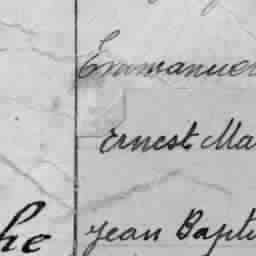 Emmanuel
Ernest Ma
he Jean Bapti